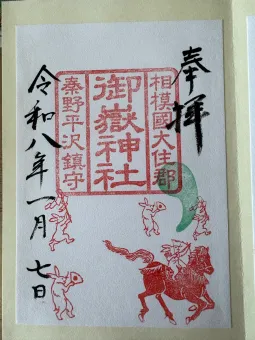 奉拝
相模國大住郡
御嶽神社
秦野平沢鎮守
令和八年一月七日